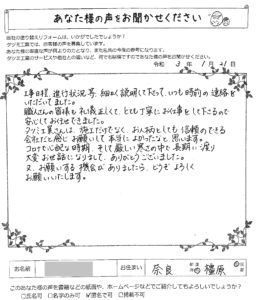 あなた様の声をお聞かせください
当社の塗り替えリフォームは、いかがでしたでしょうか?
タツミ工業では、お客様の声を募集しています。
令和 3年 1月 21日
工事日程、進行状況等、細かく説明して下さって、いつも時前の連絡を
いただいてました。
職人さんの皆様も礼儀正しくて、とても丁寧にお仕事をして下さるので
安心してお任せできました。
タツミ工業さんは、施工だけでなく、お人柄としても信頼のできる
会社だと感じお願いして本当によかったなと思います。
コロナで心配な時期、そして厳しい寒さの中、長期に渡り
大変お世話になりまして、ありがとうございました。
又、お願いする機会がありましたら、どうぞよろしく
お願いいたします。
お名前
お住まい
奈良
橿原
このあなた様の声を書籍などの紙面や、ホームページなどでご紹介してもよろしいでしょうか?
□氏名可 □名字のみ可 ☑匿名で可 □掲載不可